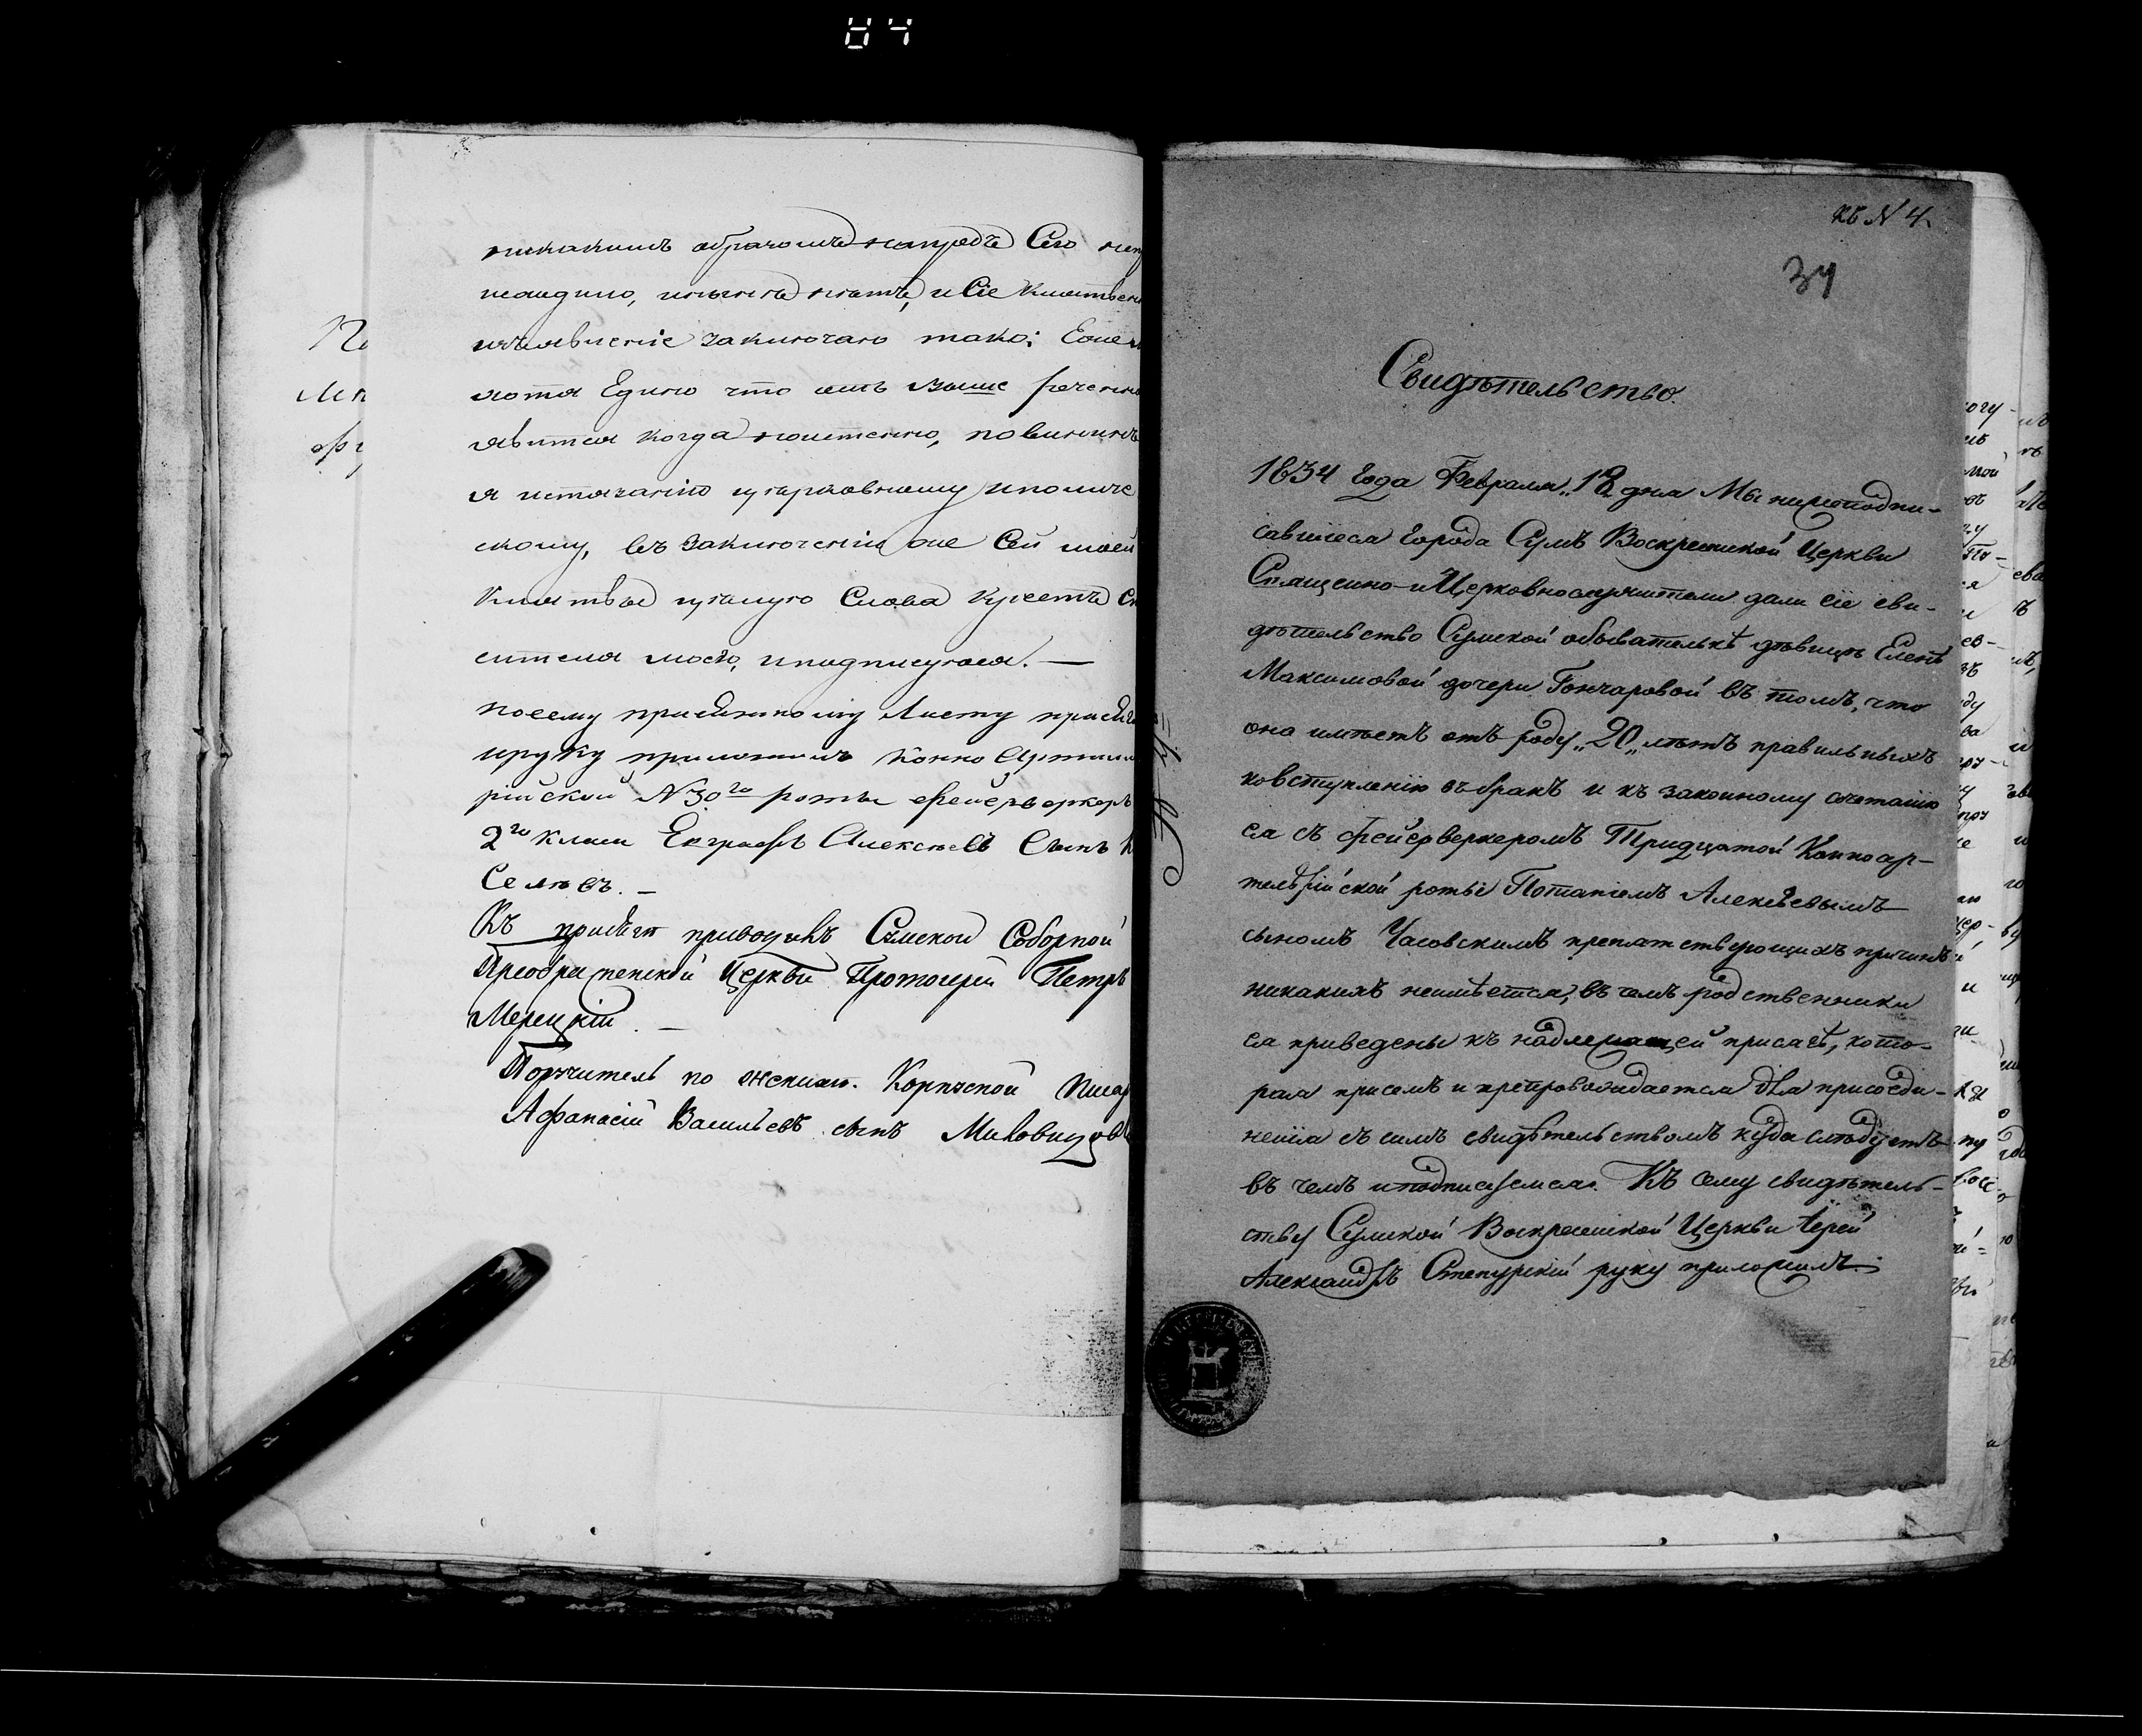 84
никакимъ образомъ напредъ Сего не
исаидино, ннынѣ нѣтъ, и Сіе Клятвен
изъявленіе заключаю тако: Ежели
хотя Едино что отъ выше рѣченн
явится когда неистенно, повиненъ
я истязанію церковному иполиче
скому, въ заключеніи же Сей моей
Клятвы цѣлую Слова Крестъ Сп
сителя моего, иподписуюся. —
посему присяжному Листу присяг
ируку приложилъ Конно Артилле
рійской N 30го роты фейерверкеръ
2го класа Евграфъ Алексѣевъ Сынъ
Селѣвъ. —
Къ присяги приводилъ Сумской Соборной
Преображенской Церкви Протоіерей Петръ
Мерецкій. —
Поручитель по жених. Корпусной Писарь
Афанасій Васильевъ сынъ
къ N 4.
34
Свидѣтельство.
1834 Года Февраля „18„ дня Мы нижеподпи-
савшіеся Города Сумъ Воскресенской Церкви
Священно-и Церковнослужители дали сіе сви-
дѣтельство Сумской обывателькѣ дѣвицѣ Еленѣ
Максимовой дочери Гончаровой въ томъ, что
она имѣетъ отъ роду „20„ лѣтъ правильныхъ
ковступленію въ бракъ и къ законному сочетанію
ея съ фейерверкеромъ Тридцатой Конноар-
телерійской роты Потапіемъ Алексѣевымъ
сыномъ Часовскимъ препятствующихъ причинъ
никакихъ неимѣется, въ чемъ родственники
ея приведены къ надлежащей присягѣ, кото-
рая присемъ и препровождается для присоеди-
ненія съ симъ свидѣтельствомъ куда слѣдуетъ
въ чемъ иподписуемся. Къ сему свидѣтель-
ству Сумской Воскресенской Церкви Іерей
Александръ Степурскій руку приложилъ.